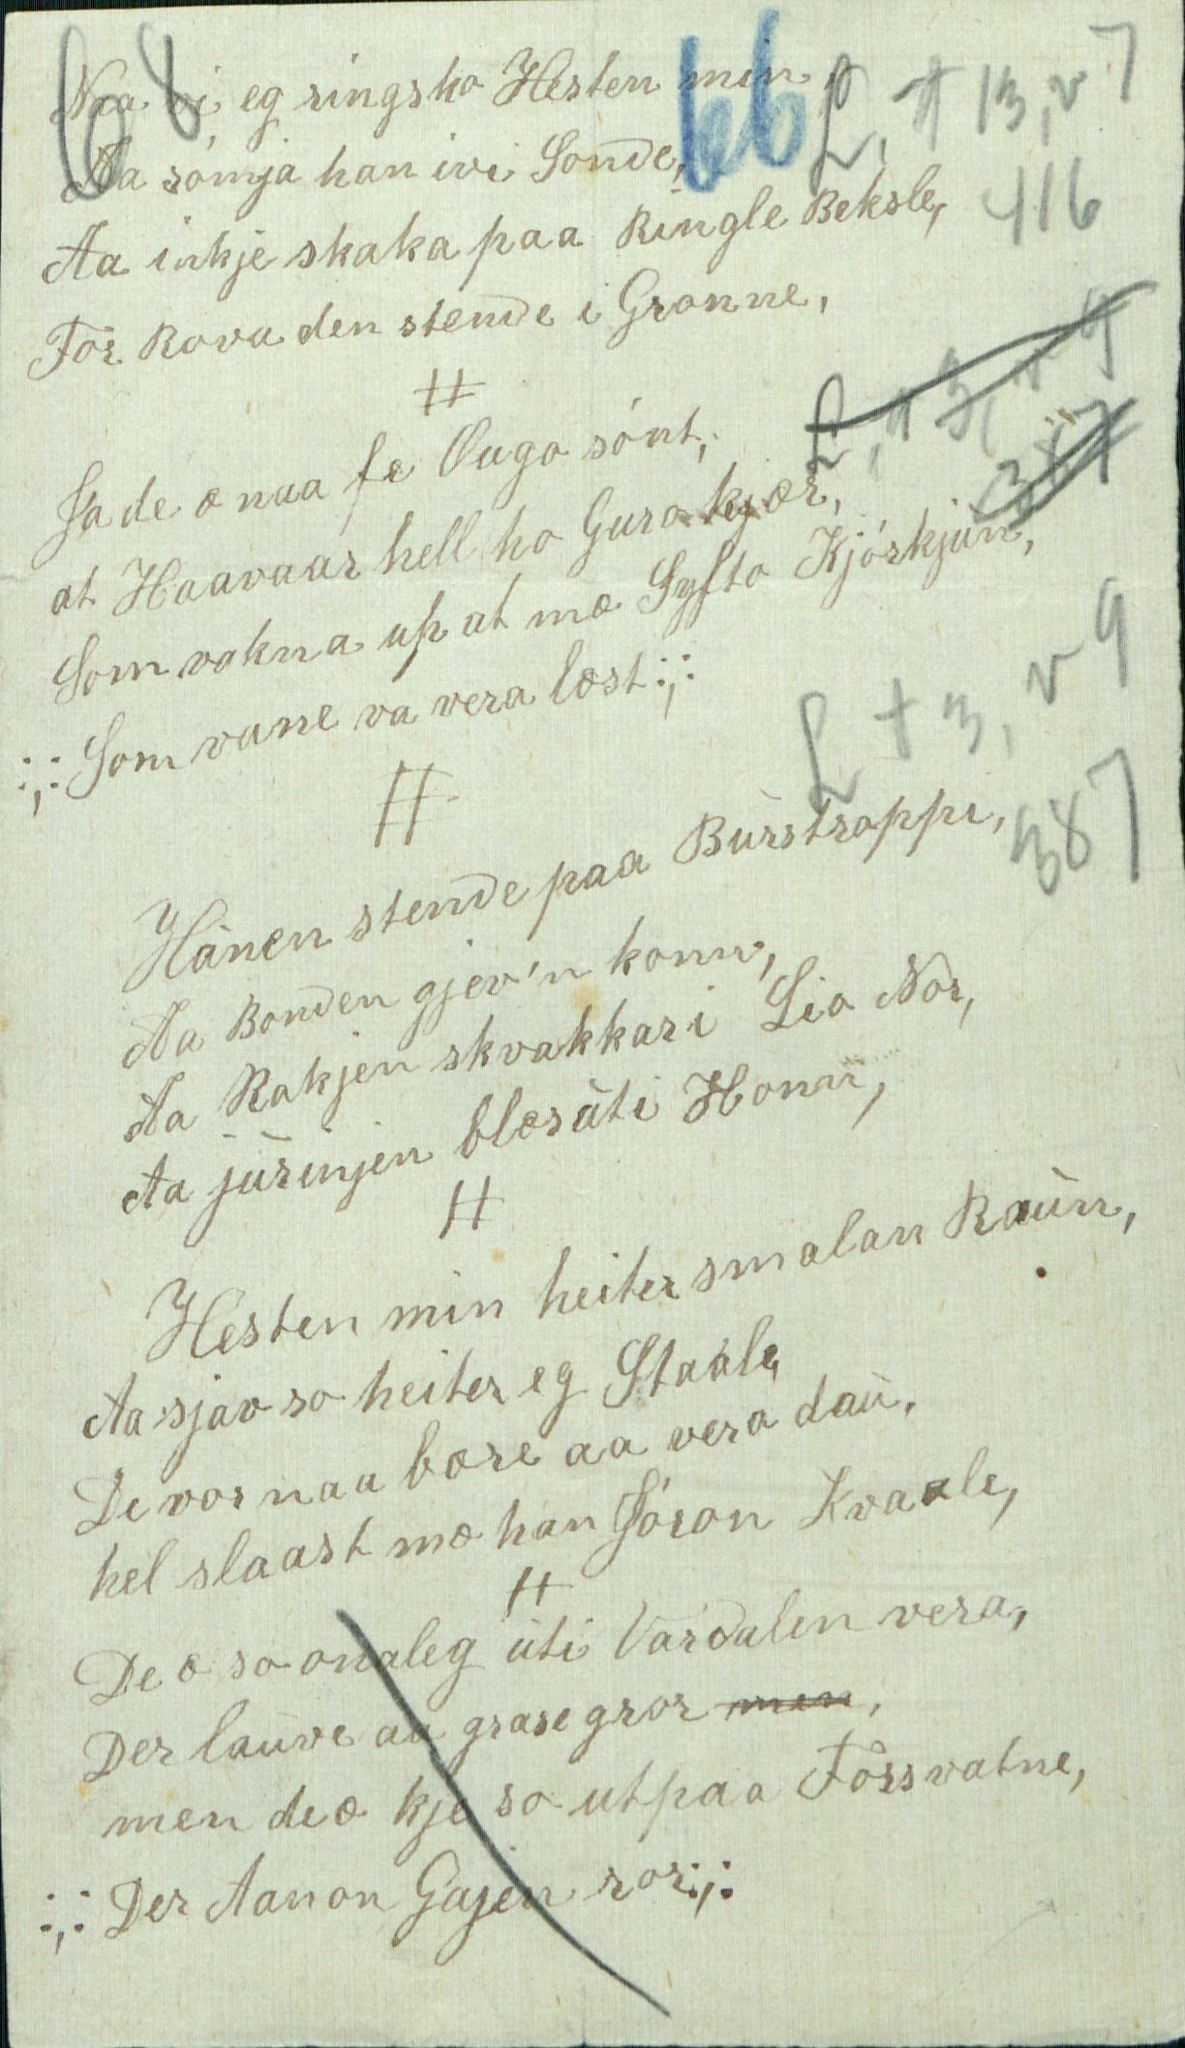 68
66
Naa vi eg ringsko Hesten min,
L, t 13, v 7
Aa sómja han ivi Sonde,
416
Aa inkje skaka paa Ringle Beksle,
För Rova den stende i Gronne,
#
L, t 3, v 9
387
Ja de æ naa fe Ougo sónt,
at Haavaar hell ho Guro kjær,
Som vakna up at mæ Syfto Kjórkjün,
:,: Som vane va vera læst :,:
L t 3, v 9
387
#
Hänen stende paa Bürstroppe,
Aa Bonden gjev'n konn,
Aa Rakjen skvakkar i Lio Nor,
Aa jürinjen blæs üti Honn,
#
Hesten min heiter smalan Raün,
Aa sjav so heiter eg Staale,
De vor naa bære aa vera daü,
hel slaast mæ han Jóron Kvaale,
#
De æ so onaleg üti Vardalen vera,
Der laüve aa grase gror men,
men de æ kje so ut paa Förs vatne,
:,: Der Aanon Gajen ror :,: